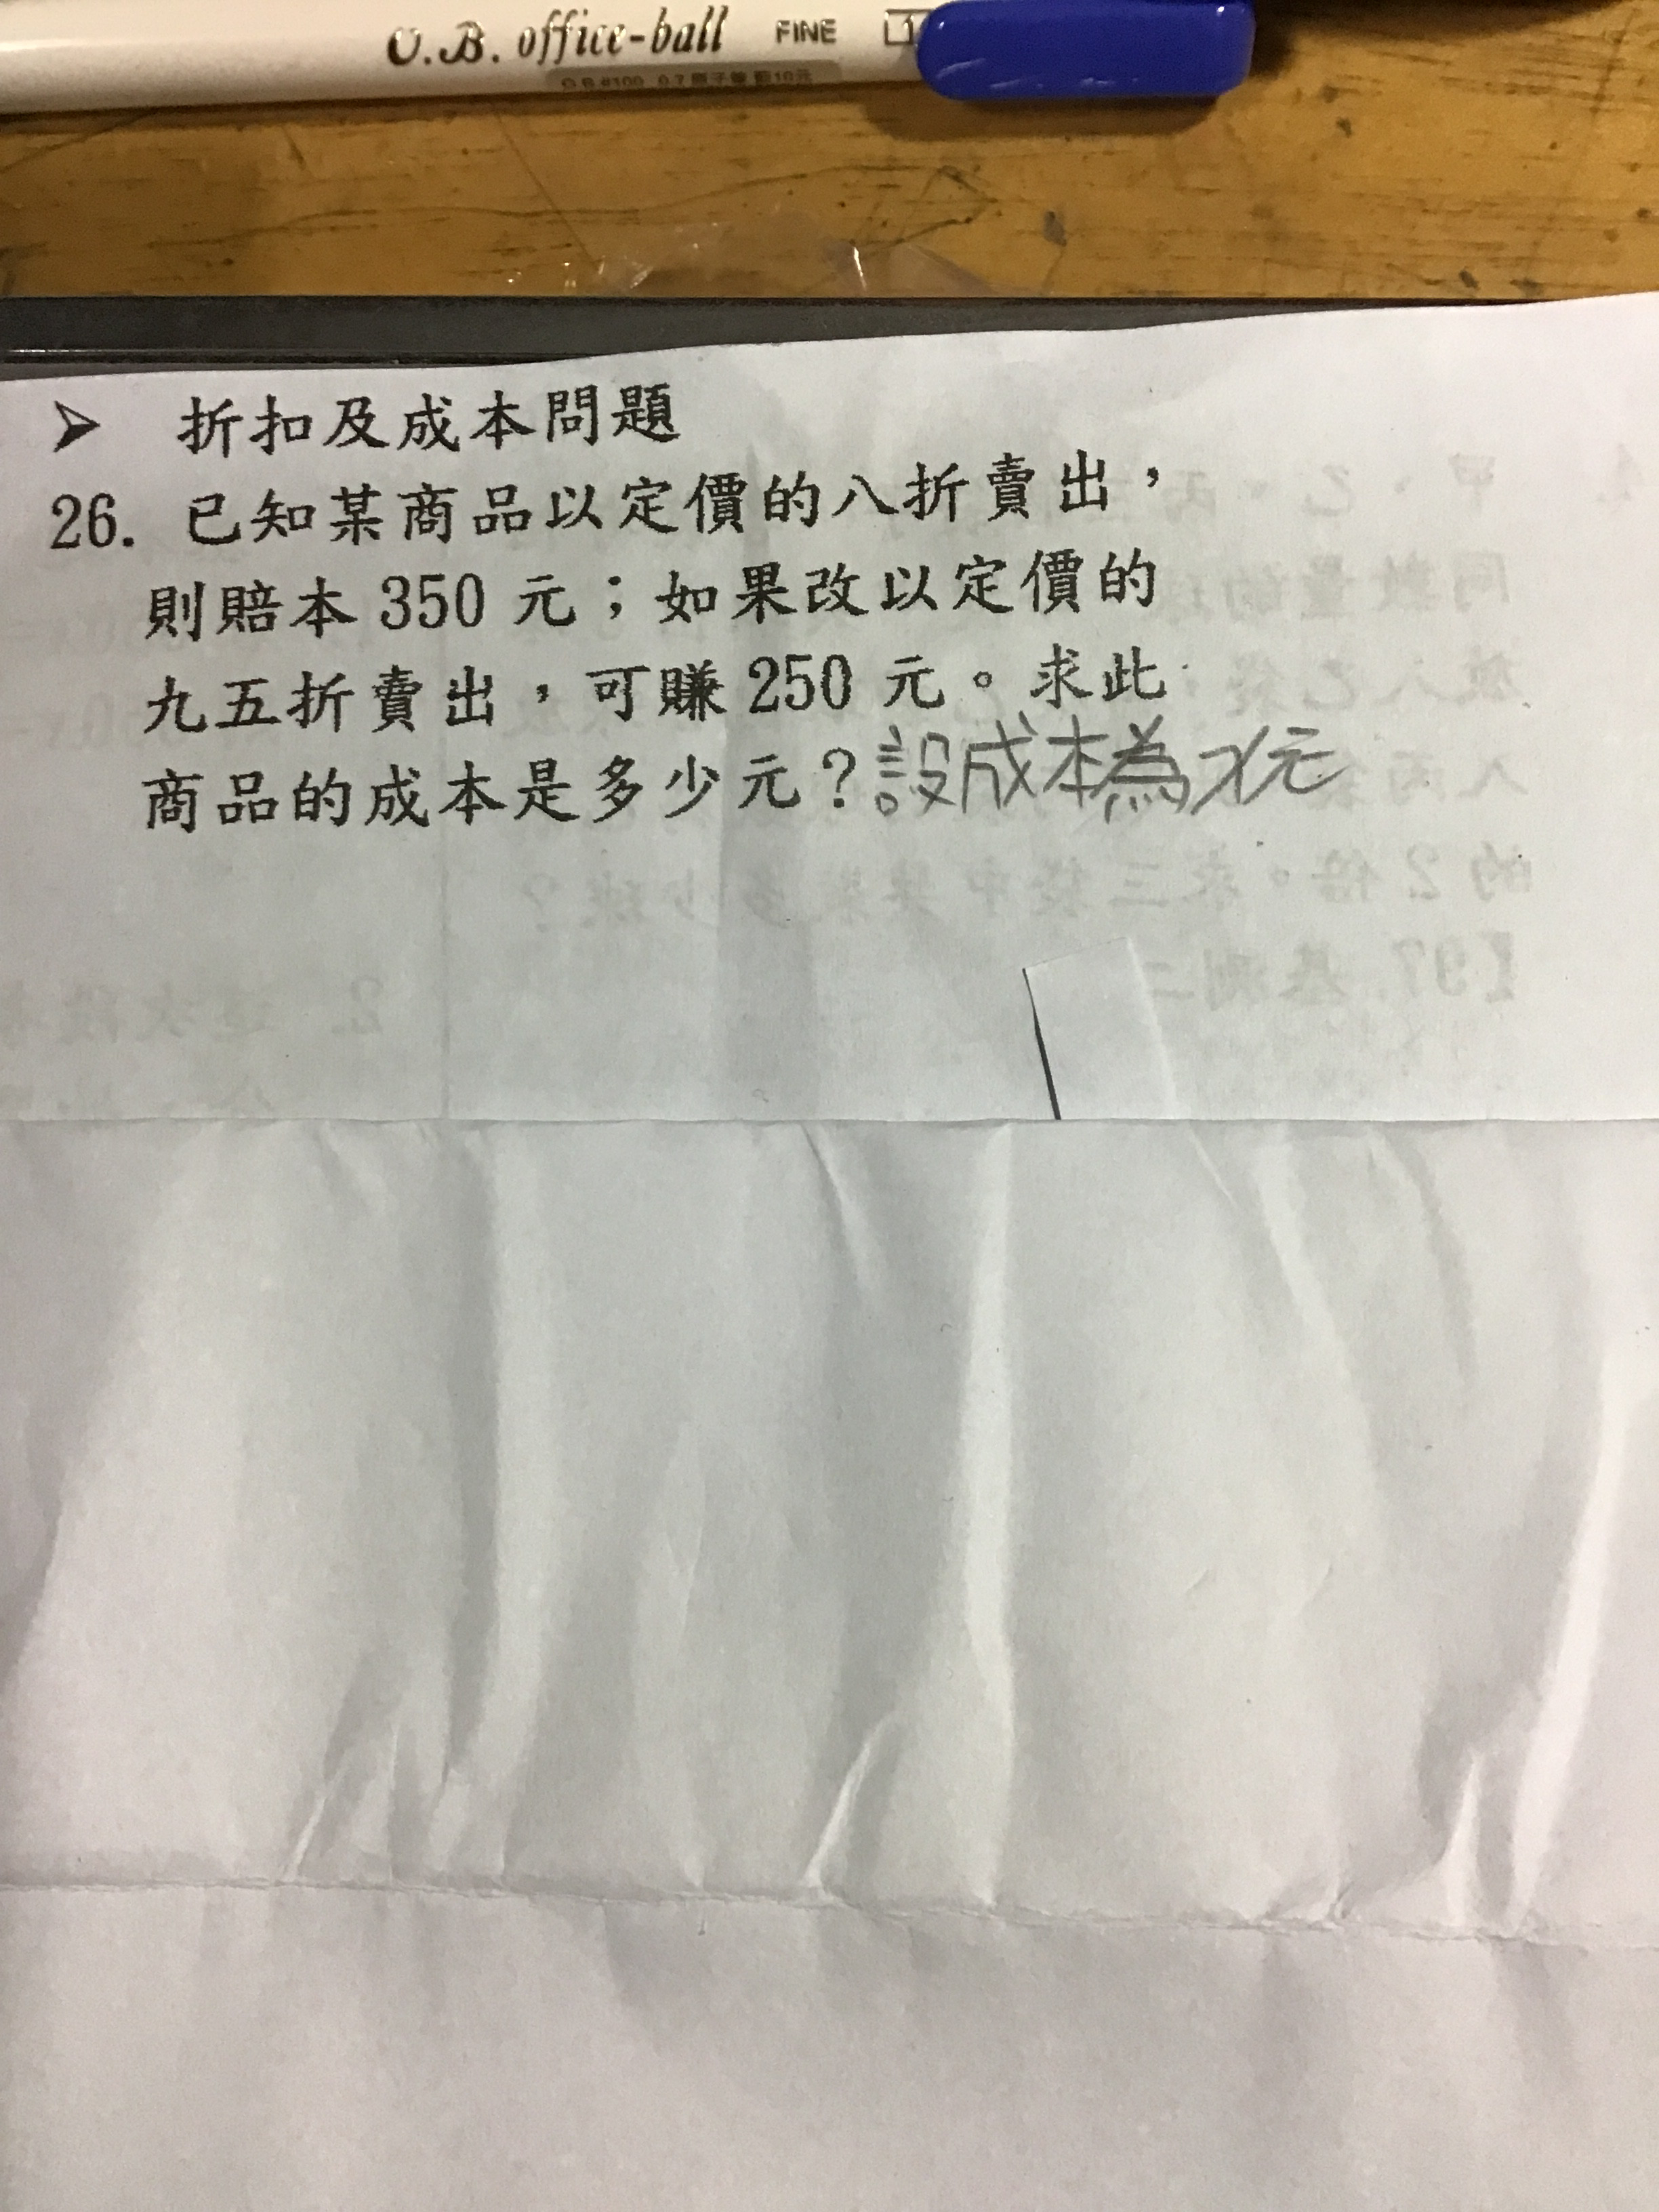 O.B. office-ball FINE
➢ 折扣及成本問題
26. 已知某商品以定價的八折賣出，
則賠本 350 元；如果改以定價的
九五折賣出，可賺 250 元。求此
商品的成本是多少元？設成本為x元
的 2 倍。求三袋中共裝多少球？
【97. 基測二